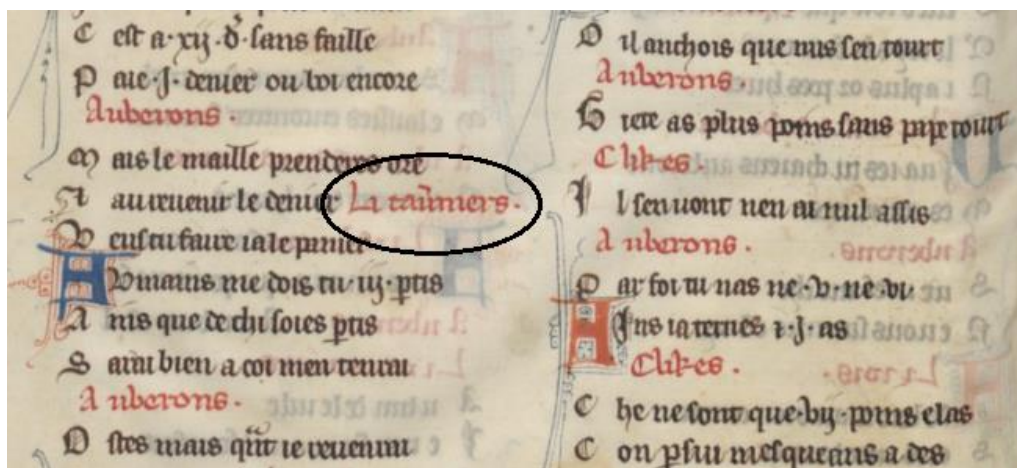 C est a·xij·d̄·sans faille
P aie·j·denier ou boi encore
Auberons·
M ais le maille prenderes ore
Et au reuenir le denier Li tau͂niers·
V eus tu faire ia le panier
A V mains me dois tu·iij·ptis
A ins que de chi soies ptis
S arai bien a coi men tenrai
Auberons·
O stes mais qn̄t ie reuenrai
O il anchois que nus sen tourt
Auberons·
H iere as plus poins sans papetourt
Clikes·
I l sen vont nen ai nul assis
Auberons·
P ar foi tu nas ne·v·ne·vi
A Ins ia ternes ⁊·j·as
Clikes·
C he ne sont que·vij·poins elas
C on psui mesqueans a des